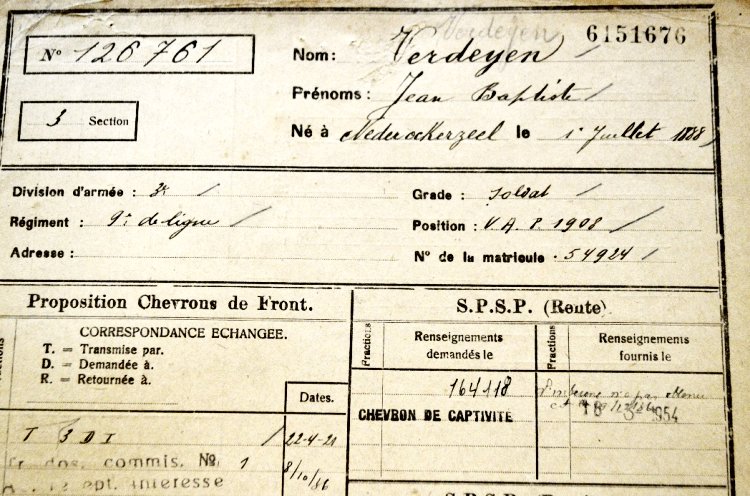 Verdeyen
6151676
N° 126761
Nom: Verdeyen /
Prénoms: Jean Baptiste /
3 Section
Né à Nederockerzeel le 1r Juillet 1888
Division d'armée : 3e /
Grade : Soldat
Régiment : 9e de ligne /
Position : V.A.P. 1908 /
Adresse :
N° de la matricule . 54924 /
Proposition Chevrons de Front.
CORRESPONDANCE ECHANGEE.
T. = Transmise par.
D. = Demandée à.
R. = Retournée à.
Dates.
T 3DI / 22-4-21
commis. № 1 8/10/
interesse
S.P.S.P. (Rente)
Fractions
Renseignements
demandés le
Fractions
Renseignements
fournis le
164118
CHEVRON DE CAPTIVITÉ
1954